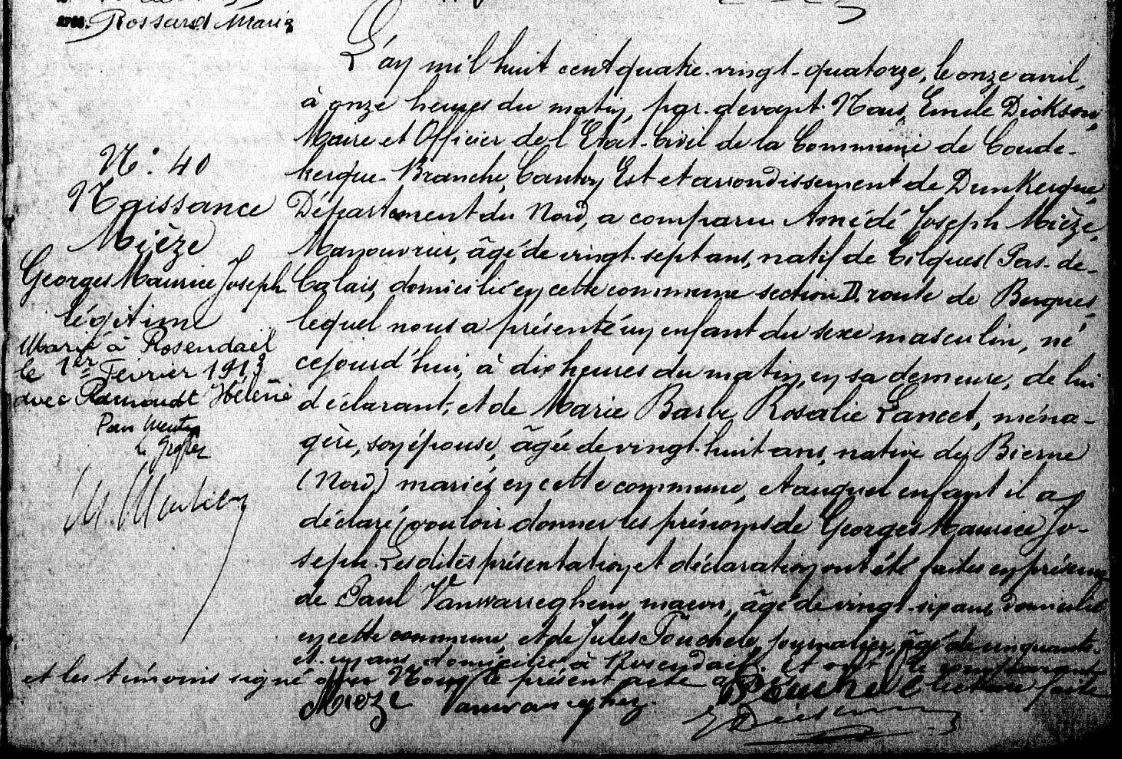 Rossard Maria
N°. 40
Naissance
Mièze
Georges Maurice Joseph
légitime
Marié à Rosendaël
le 1er Février 1913
avec Hélène
L'an mil huit cent quatre-vingt-quatorze, le onze avril,
à onze heures du matin, par-devant Nous, Emile Dickson,
Maire et Officier de l'Etat-Civil de la Commune de Coude-
kerque-Branche, Canton Est et arrondissement de Dunkerque,
Département du Nord, a comparu Amédé Joseph Mièze,
Manouvrier, âgé de vingt-sept ans, natif de Tilques (Pas-de-
Calais, domicilié en cette commune section D. route de Bergues,
lequel nous a présenté un enfant du sexe masculin, né
cejourd'hui, à dix heures du matin, en sa demeure, de lui
déclarant, et de Marie Barbe Rosalie Lancet, ména-
gère, son épouse, âgée de vingt-huit ans, native de Bierne
(Nord) mariés en cette commune, et auquel enfant il a
déclaré vouloir donner les prénoms de Georges Maurice Jo-
seph. Lesdites présentation et déclaration ont été faites en présence
de Paul Vanwarreghem, maçon, âgé de vingt-six ans, domicilié
en cette commune, et de Jules Fouchel, journalier, âgé de cinquante-
et-un ans, domicilié à Rosendael. Et ont le comparant
et les témoins signé avec Nous le présent acte après lecture faite
Mieze Vanwarreghem Fouchel
E Dickson